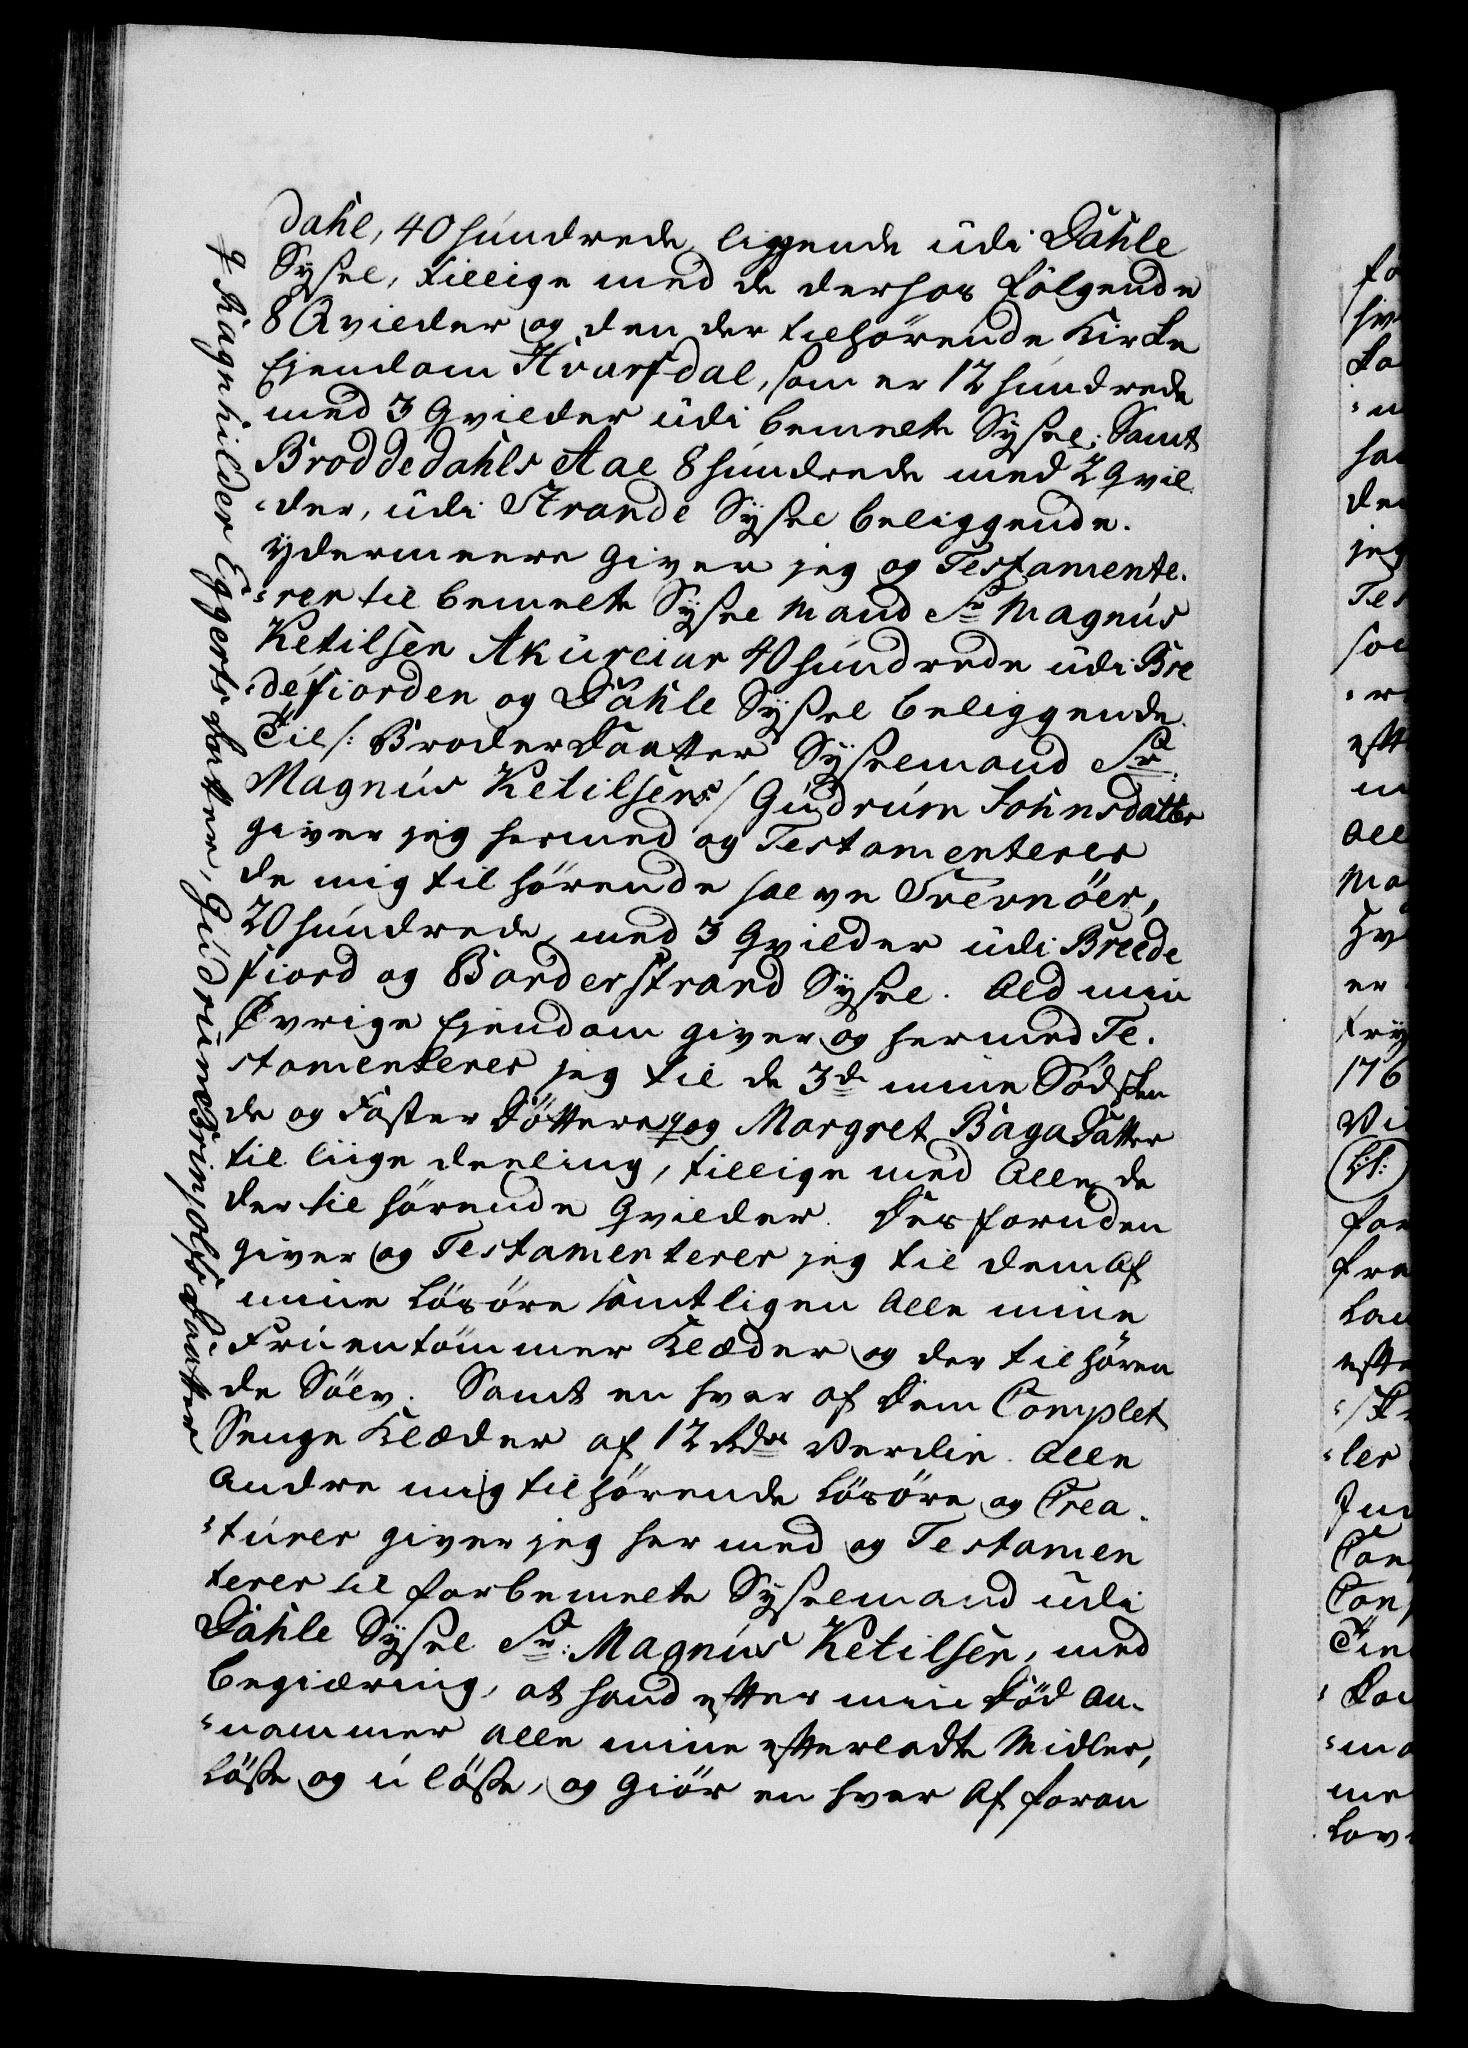 dahl, 40 hundrede, liggende udi Dahle
Sysel, tillige med de derhos følgende
8 Qvilder og den der tilhørende Kirke
Ejendom Hvarfsdal, som er 12 hundrede
med 3 Qvilder udi bemelte Sysel; Samt
Broddedahls Aae 8 hundrede med 2 Qvil-
-der, udi Strande Sysel beliggende.
ydermeere giver jeg og Testamente-
-rer til bemelte Syssel Mand Sr Magnus
Ketilsen Akureiar 40 hundrede udi Bre
-defiorden og Dahle Sysel beliggende.
Til /: Broder Daatter Sysselmand Sr.
Magnus Ketilsens :/ Gudrum Johnsdatter
giver jeg hermed og Testamenterer
de mig tilhørende halve Svevnöer,
20 hundrede, med 3 Qvilder udi Breede
fiord og Barderstrand Sysel. Ald min
Øvrige Ejendom giver og hermed Te-
stamenterer jeg til de 3de mine Södsken
de og Faster Döttere og Margret Baga Datter
til liige deeling, tillige med Alle de
der til hørende Qvilder. Desforuden
giver og Testamenterer jeg til dem af
mine Løsøre samtligen Alle mine
Fruentømmer Klæder og der tilhøren
de Sölv. Samt en hver af dem Complet
Senge Klæder af 12 Rdrs Verdie. Alle
Andre mig tilhørende Løsøre og Crea-
-turer giver jeg her med og Testamen
terer til forbemelte Sysselmand udi
Dahle Sysel Sr. Magnus Ketilsen, med
begiæring, at hand efter min Död an-
-nammer alle mine efterladte Midler,
Løsse og u løsse, og giör en hver af foran
Ragnhilder Eggertsdatter, Gudrun Brinjolfsdaatter